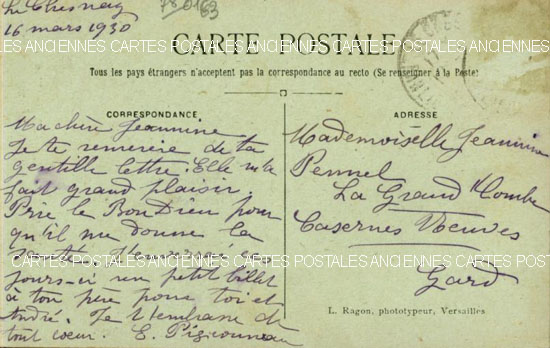 Le Chesnay
16 mars 1930
78 0163
CARTE POSTALE
CARTES POSTALES ANCIENNES CARTES POSTALES ANCIENNES CARTES POSTALES ANCIENNES
Tous les pays étrangers n'acceptent pas la correspondance au recto (Se renseigner à la Poste)
CORRESPONDANCE
Ma chère Jeannine
Je te remercie de ta
gentille lettre. Elle m'a
fait grand plaisir.
Prie le Bon Dieu pour
qu'il me donne la
jours-ci un petit billet
à ton père pour toi et
André. Je t'embrasse de
tout coeur. E.
ADRESSE
Mademoiselle Jeannine
Pennel
La Grand'Combe
Casernes Neuves
CARTES POSTALES ANCIENNES CARTES POSTALES ANCIENNES CARTES POSTALES ANCIENNES
Gard
L. Ragon, phototypeur, Versailles